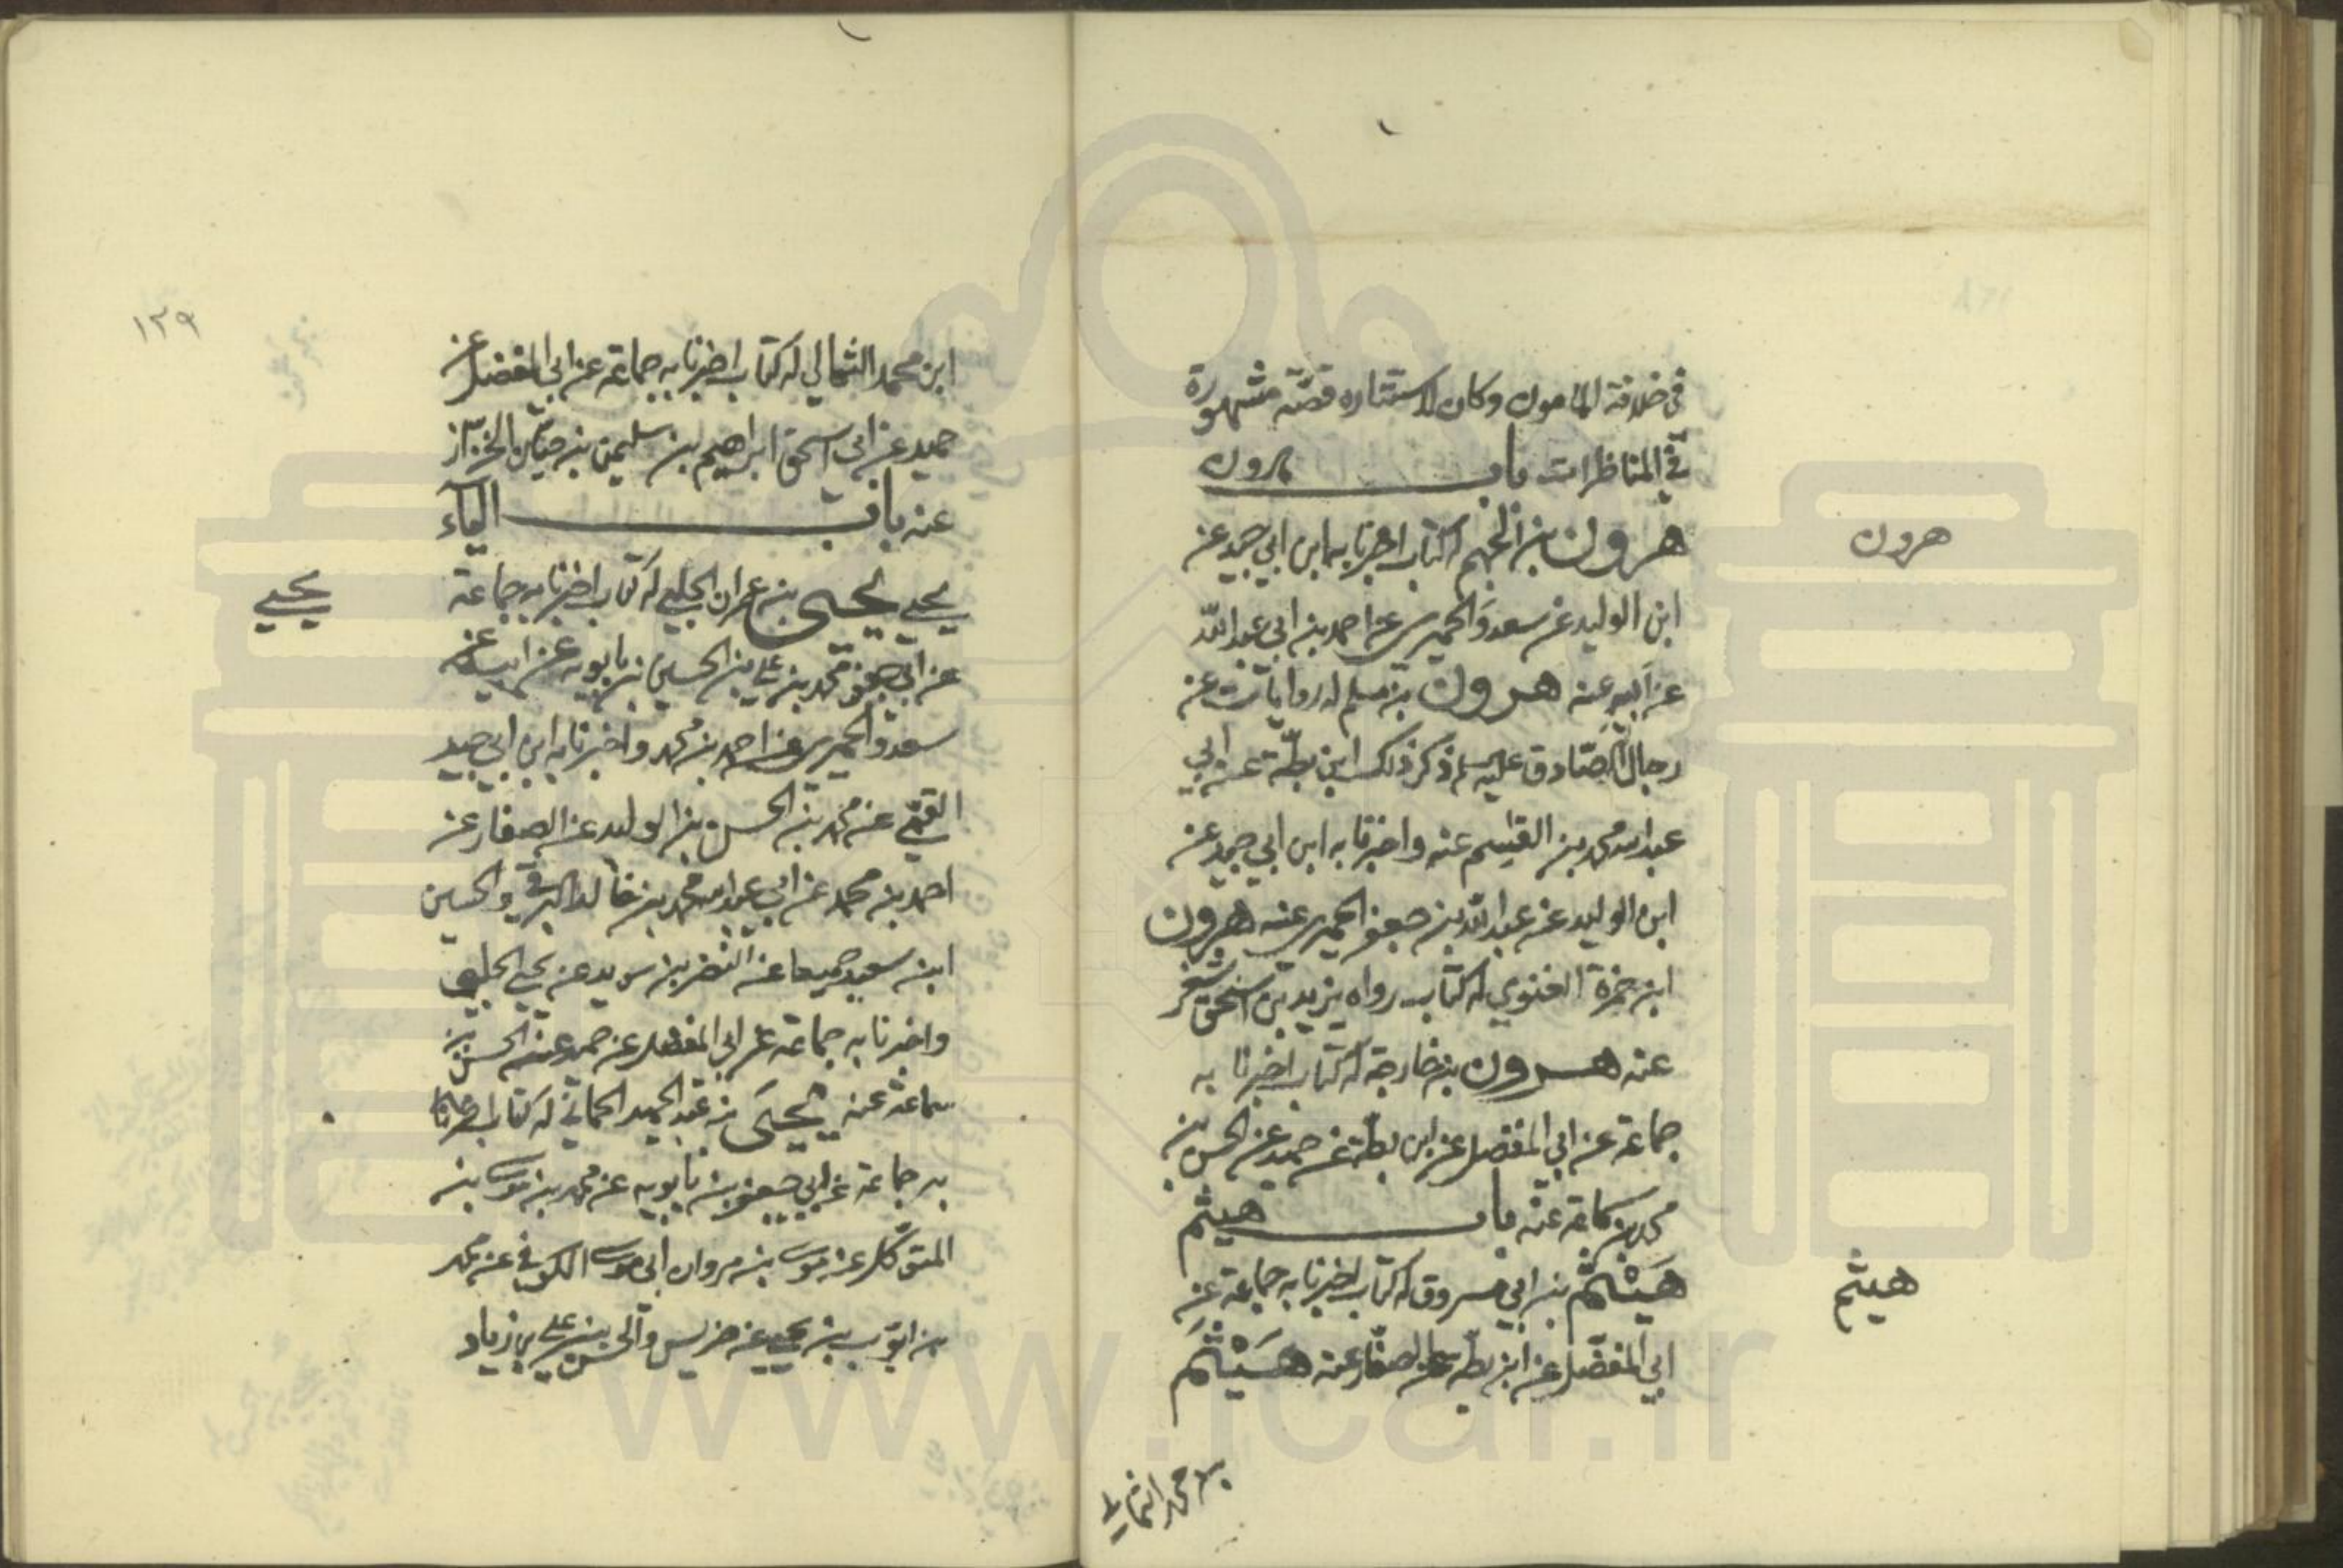 في خلافة المامون وكان لاستتاره قصّة مشهورة
في المناظرات باب هرون
هرون بن الجهم له كتاب اخبرنا به ابن ابي جيد عن
ابن الوليد عن سعد والحميري عن احمد بن ابي عبد الله
عن ابيه عنه هرون بن مسلم له روايات عن
رجال الصّادق عليه سلم ذكر ذلك ابن بطّة عن ابي
عبد الله محمد بن القسم عنه واخبرنا به ابن ابي جيد عن
ابن الوليد عن عبد الله بن جعفر الحميري عنه هرون
ابن حمزة الغنوي له كتاب رواه يزيد بن اسحق شغر
عنه هرون بن خارجة له كتاب اخبرنا به
جماعة عن ابي المفضل عن ابن بطة عن حميد عن الحسن بن
محمد بن سماعة عنه باب هيثم
هَيْثَم بن ابي مسروق له كتاب اخبرنا به جماعة عن
ابي المفضّل عن ابن بطه عن الصفّار عنه هَيْثَم
هرون
هيثم
بن محمد الثمالي
١٢٩
ابن محمد الثمالي له كتاب اخبرنا به جماعة عن ابي المفضل عن
حميد عن ابي اسحق ابراهيم بن سليمن بن حيان الخزاز
عنه باب الياء
يحيى يحيى بن عمران الحلبي له كتاب اخبرنا به جماعة
عن ابي جعفر محمد بن علي بن الحسين بن بابويه عن ابيه عن
سعد والحميري عن احمد بن محمد واخبرنا به ابن ابي جيد
القمّي عن محمد بن الحسن بن الوليد عن الصفار عن
احمد بن محمد عن ابي عبد الله محمد بن خالد البرقي والحسين
ابن سعيد جميعا عن النضر بن سويد عن يحيى الحلبي
واخبرنا به جماعة عن ابي المفضل عن حميد عن الحسن بن
سماعة عنه يحيى بن عبد الحميد الحماني له كتاب اخبرنا
به جماعة عن ابي جعفر بن بابويه عن محمد بن موسى بن
المتوكل عن موسى بن ابي موسى الكوفي عن محمد
بن ايوب بن يحيى عن ضريس والحسن بن علي بن زياد
يحيى
www.icar.ir